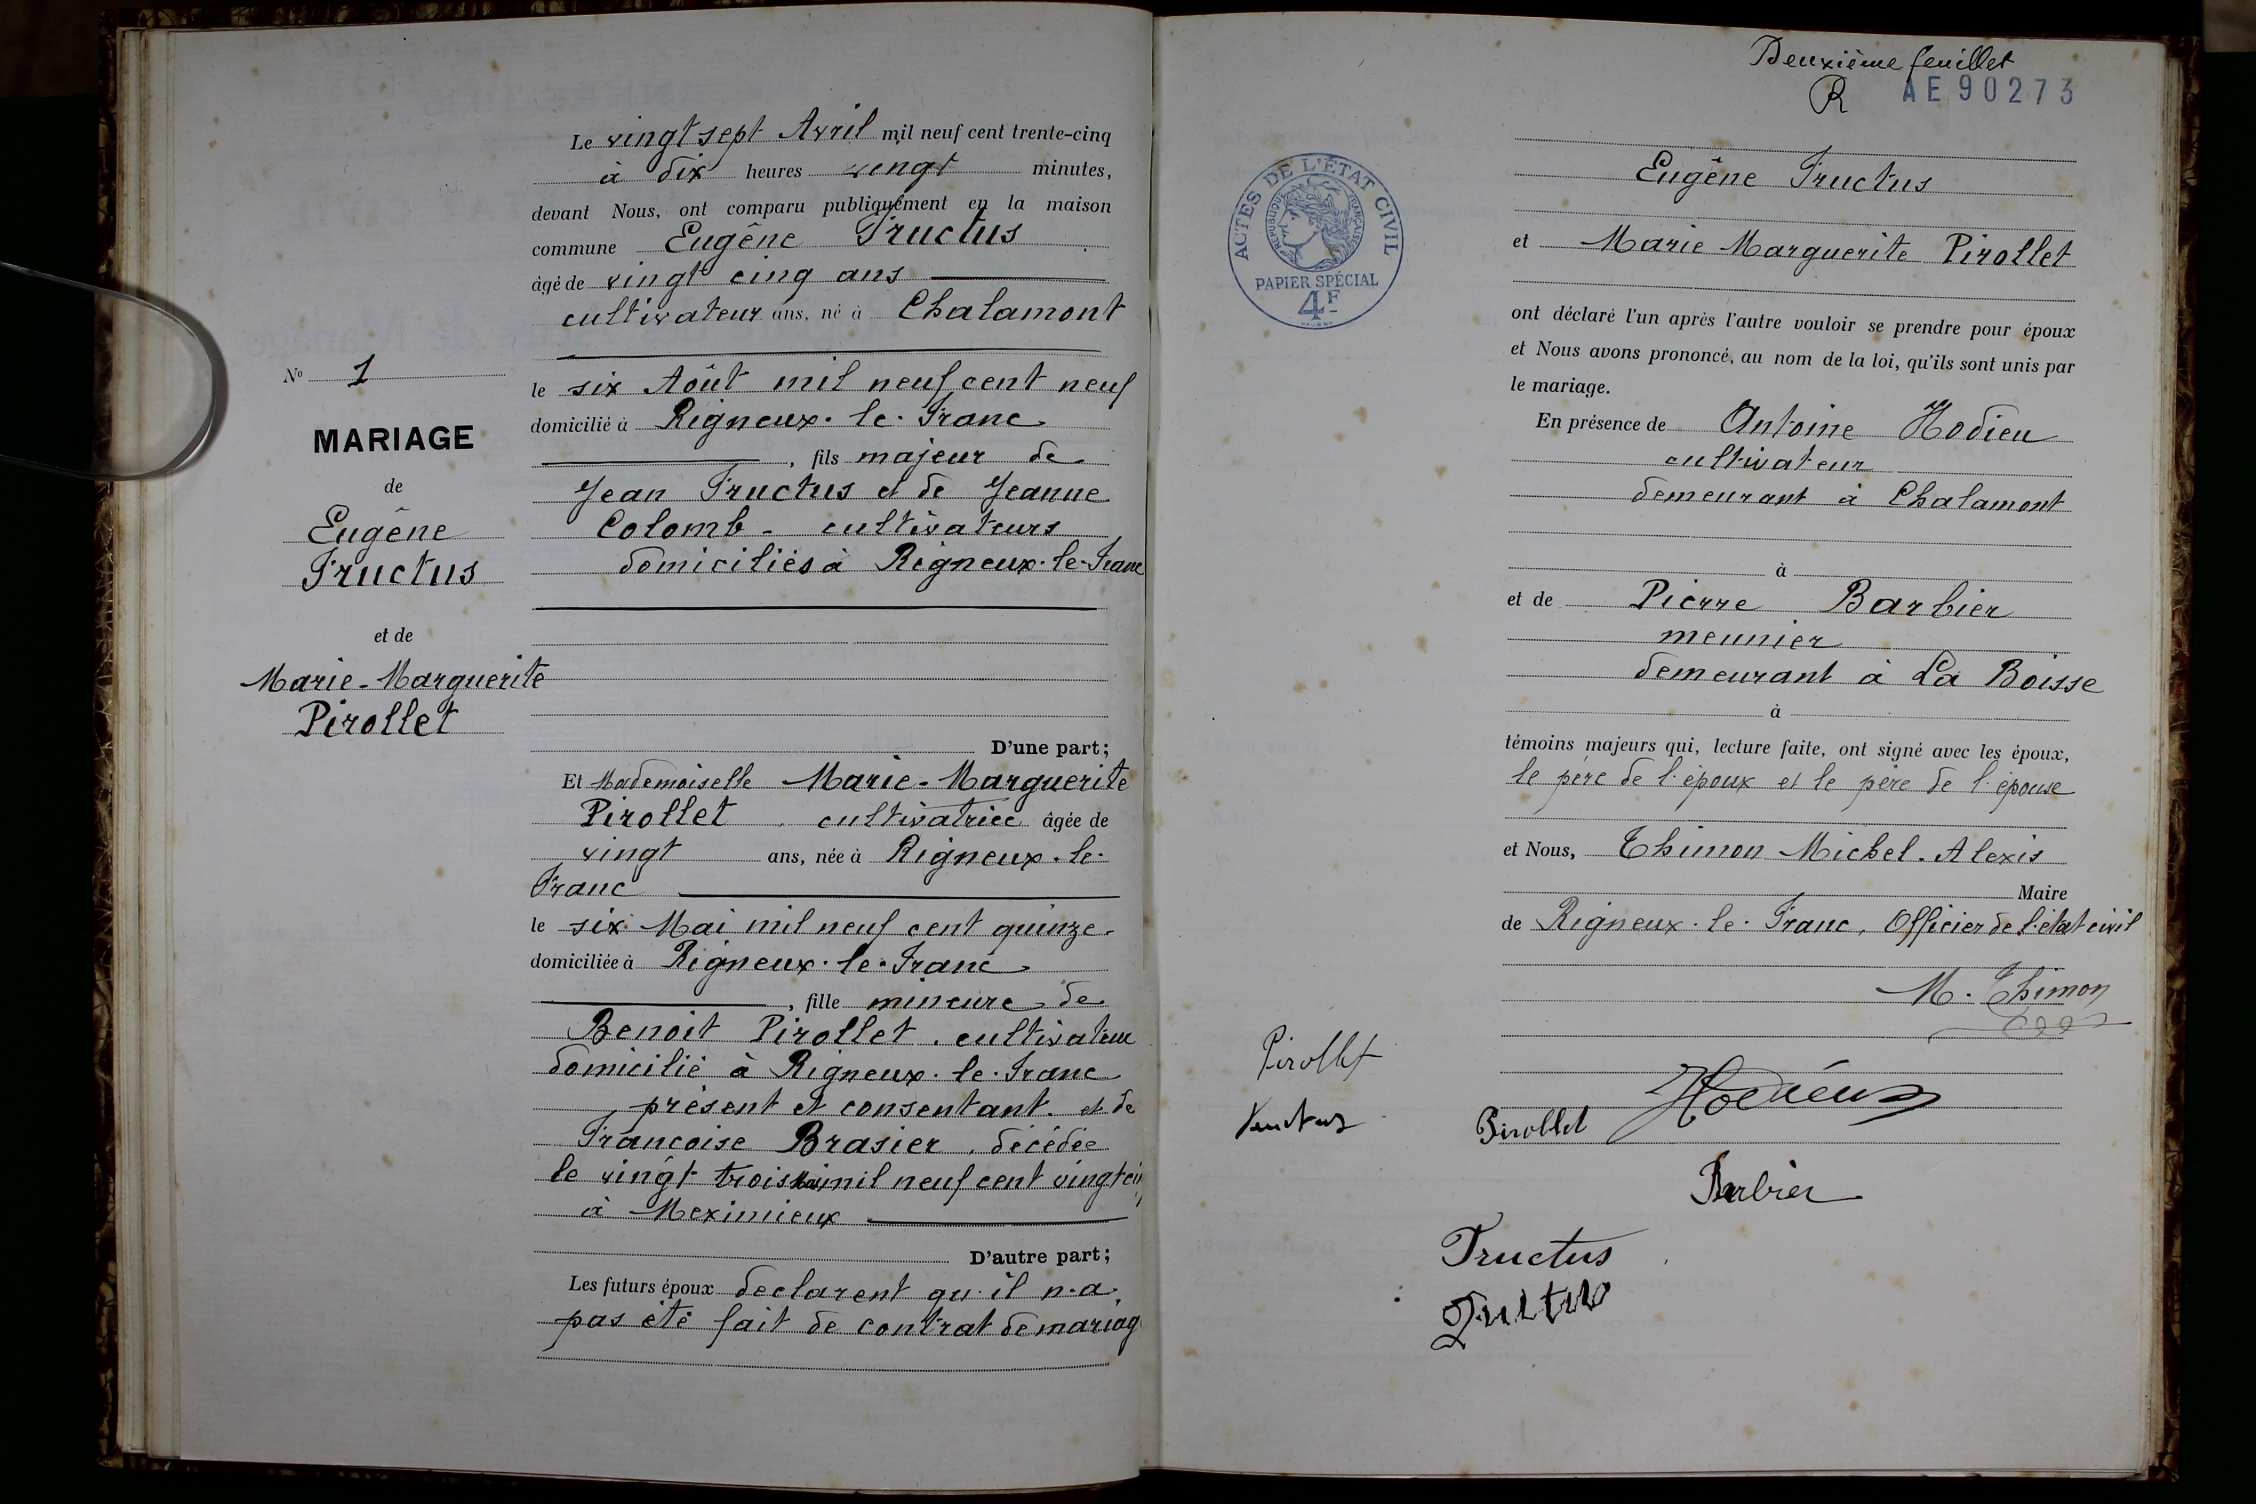 Le vingt sept Avril mil neuf cent trente-cinq
à dix heures vingt minutes,
devant Nous, ont comparu publiquement en la maison
commune Eugêne Fructus
âgé de vingt cinq ans
cultivateur ans, né à Chalamont
le six Août mil neuf cent neuf
domicilié à Rigneux-le-Franc
, fils majeur de
Jean Fructus et de Jeanne
Colomb - cultivateurs
domiciliés à Rigneux-le-Franc
D'une part;
Et Mademoiselle Marie-Marguerite
Pirollet cultivatrice âgée de
vingt ans, née à Rigneux-le-
Franc
le six Mai mil neuf cent quinze
domiciliée à Rigneux-le-Franc
, fille mineure de
Benoit Pirollet, cultivateur
domicilié à Rigneux-le-Franc
présent et consentant. et de
Francoise Brasier, décédée
le vingt trois mil neuf cent vingt
à Meximieux
D'autre part;
Les futurs époux declarent qu'il n'a
pas été fait de contrat de mariag
No 1
MARIAGE
de
Eugêne
Fructus
et de
Marie-Marguerite
Pirollet
Deuxième feuillet
R AE90273
ACTES DE L'ÉTAT CIVIL
REPUBLIQUE FRANÇAISE
PAPIER SPÉCIAL
4F
Eugêne Fructus
et Marie Marguerite Pirollet
ont déclaré l'un après l'autre vouloir se prendre pour époux
et Nous avons prononcé, au nom de la loi, qu'ils sont unis par
le mariage.
En présence de Antoine Hodieu
cultivateur
demeurant à Chalamont
à
et de Pierre Barbier
meunier
demeurant à La Boisse
à
témoins majeurs qui, lecture faite, ont signé avec les époux,
le père de l'époux et le père de l'épouse
et Nous, Thimon Michel-Alexis
Maire
de Rigneux-le-Franc, Officier de l'état civil
M. Thimon
Pirollet
Hodieu
Fructus
Pirollet
Barbier
Fructus